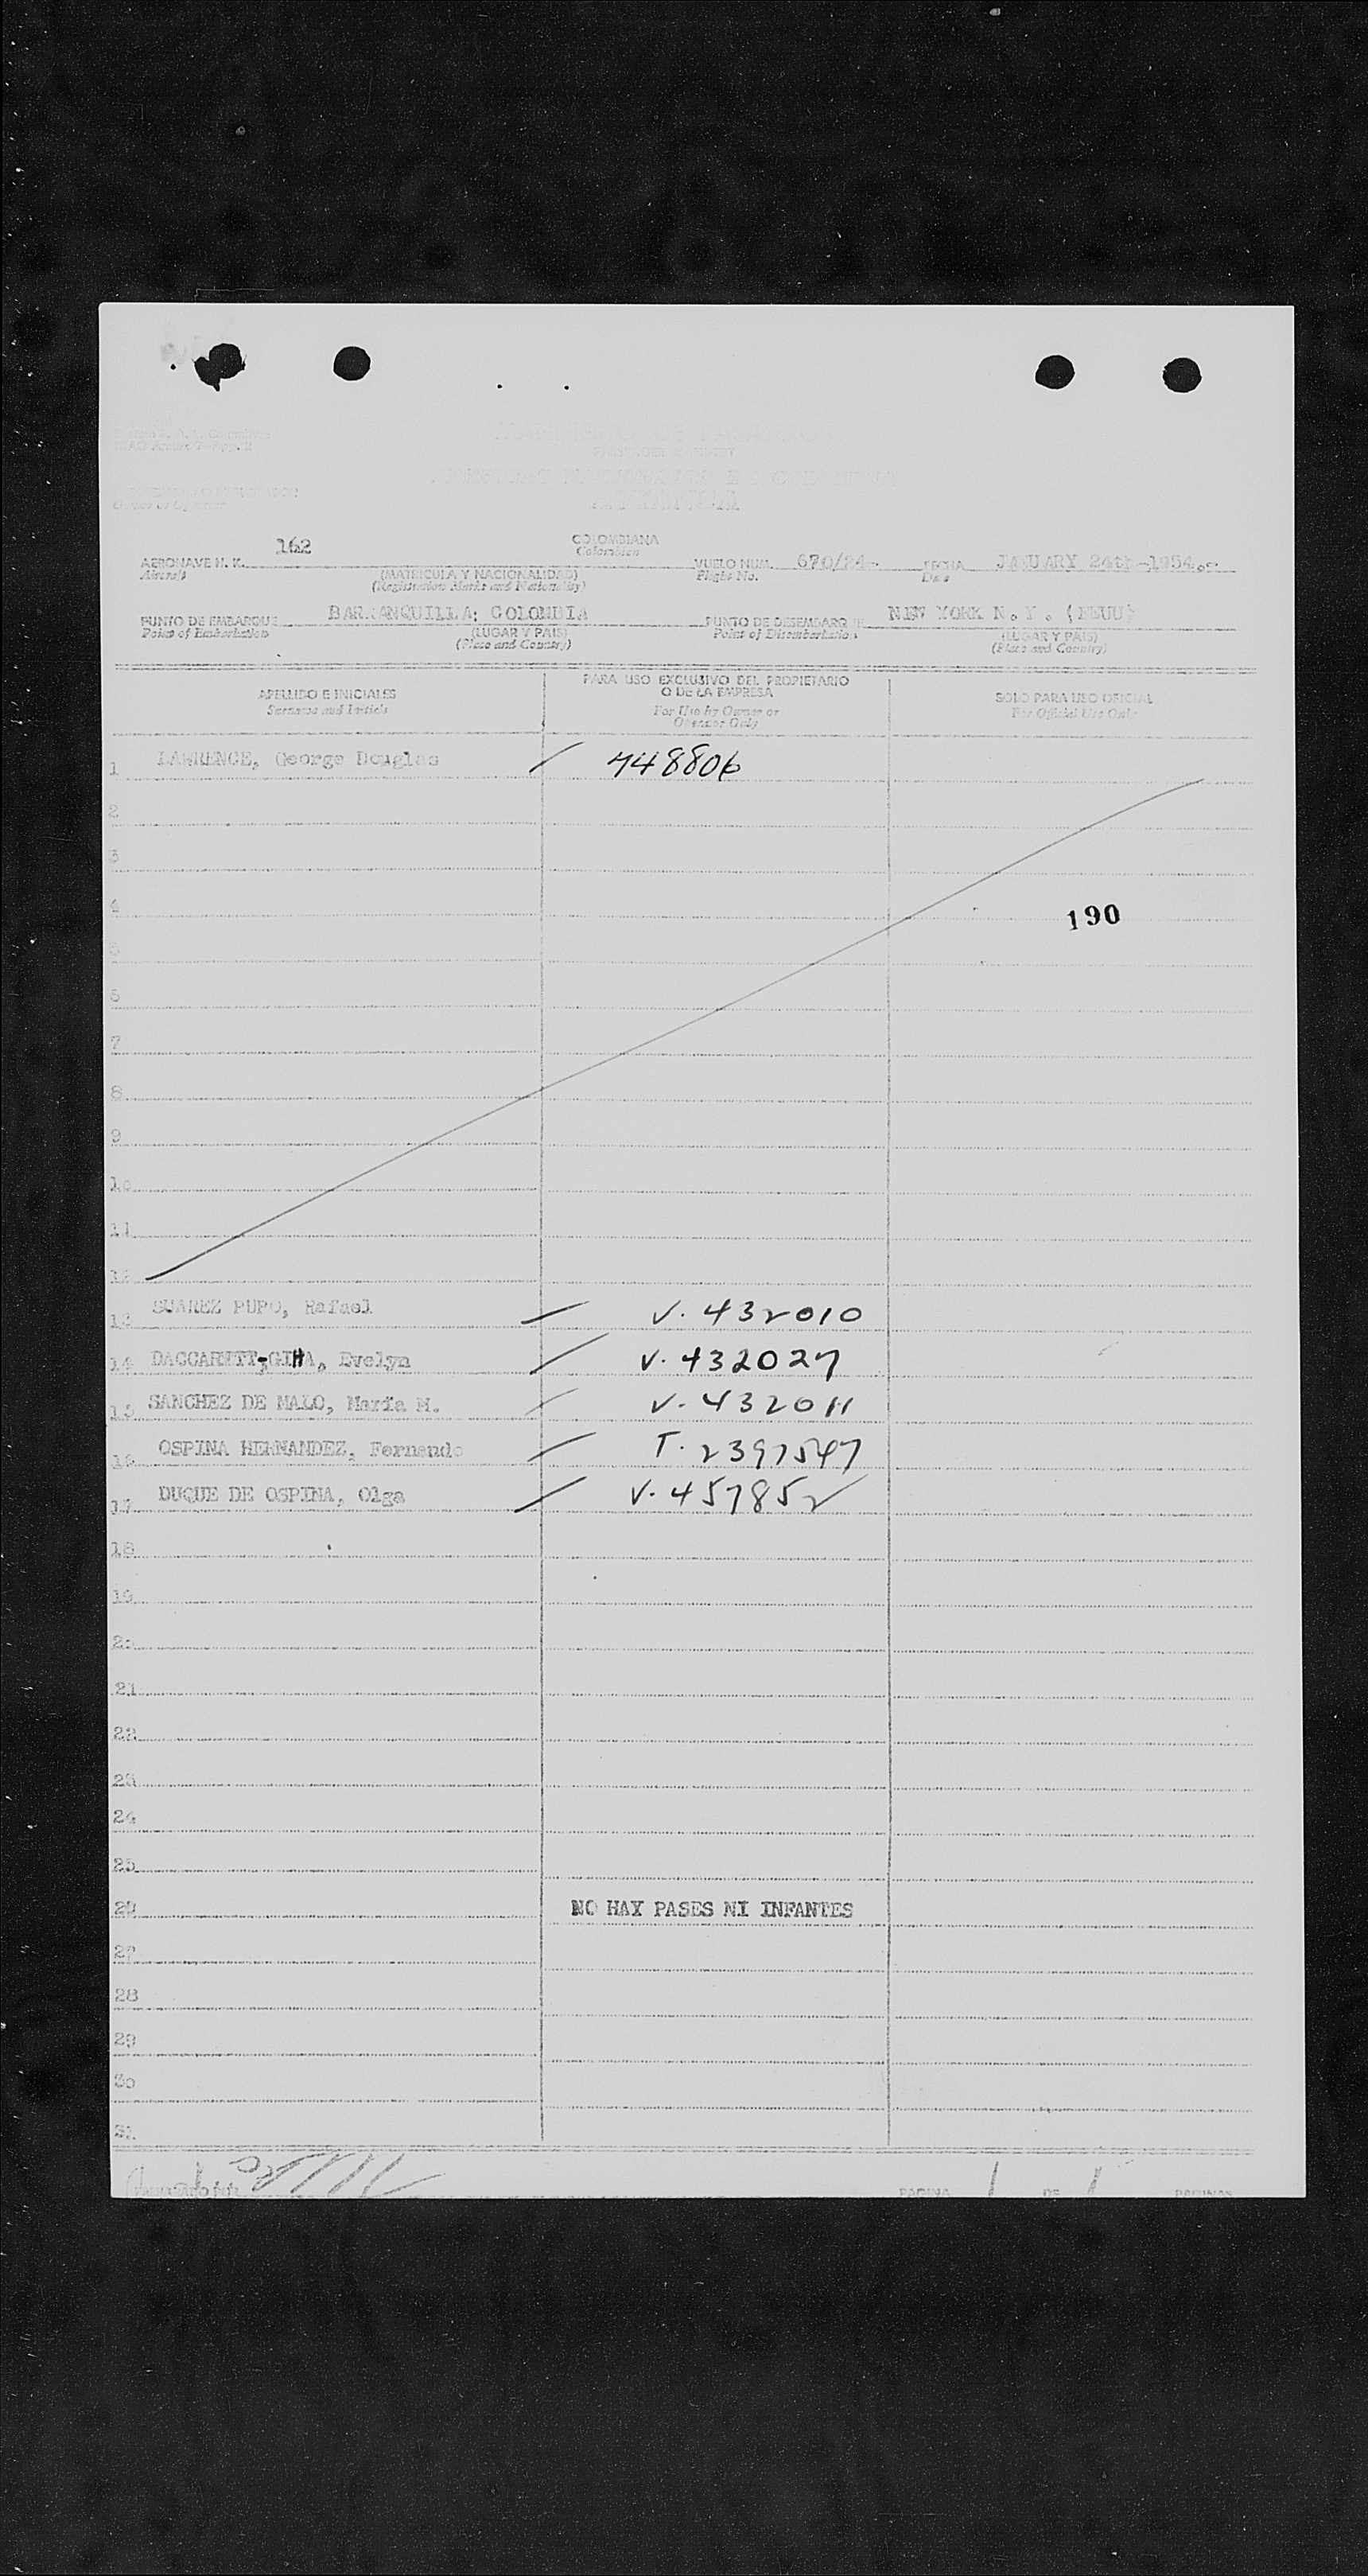 162
COLOMBIANA
Colombian
AERONAVE H. K.
Aircraft
(MATRICULA Y NACIONALIDAD)
(Registration Marks and Nationality)
VUELO NUM. 670/24-
Flight No.
FECHA JANUARY 24th-1954
Date
PUNTO DE EMBARQUE BARRANQUILLA; COLOMBIA
Point of Embarkation
(LUGAR Y PAIS)
(Place and Country)
PUNTO DE DESEMBARQUE NEW YORK N. Y. (EEUU)
Point of Disembarkation
(LUGAR Y PAIS)
(Place and Country)
APELLIDO E INICIALES
Surname and Initials
PARA USO EXCLUSIVO DEL PROPIETARIO
O DE LA EMPRESA
For Use by Owner or
Operator Only
SOLO PARA USO OFICIAL
For Official Use Only
1 LAWRENCE, George Douglas 748806
2
3
4 190
5
6
7
8
9
10
11
12
13 SUAREZ PUPO, Rafael V. 432010
14 Evelyn V. 432027
15 SANCHEZ DE MALO, María M. V. 432011
16 OSPINA HERNANDEZ, Fernando T. 2397547
17 DUQUE DE OSPINA, Olga V. 457852
18
19
20
21
22
23
24
25
26 NO HAY PASES NI INFANTES
27
28
29
30
31
PAGINA 1 DE 1 PAGINAS